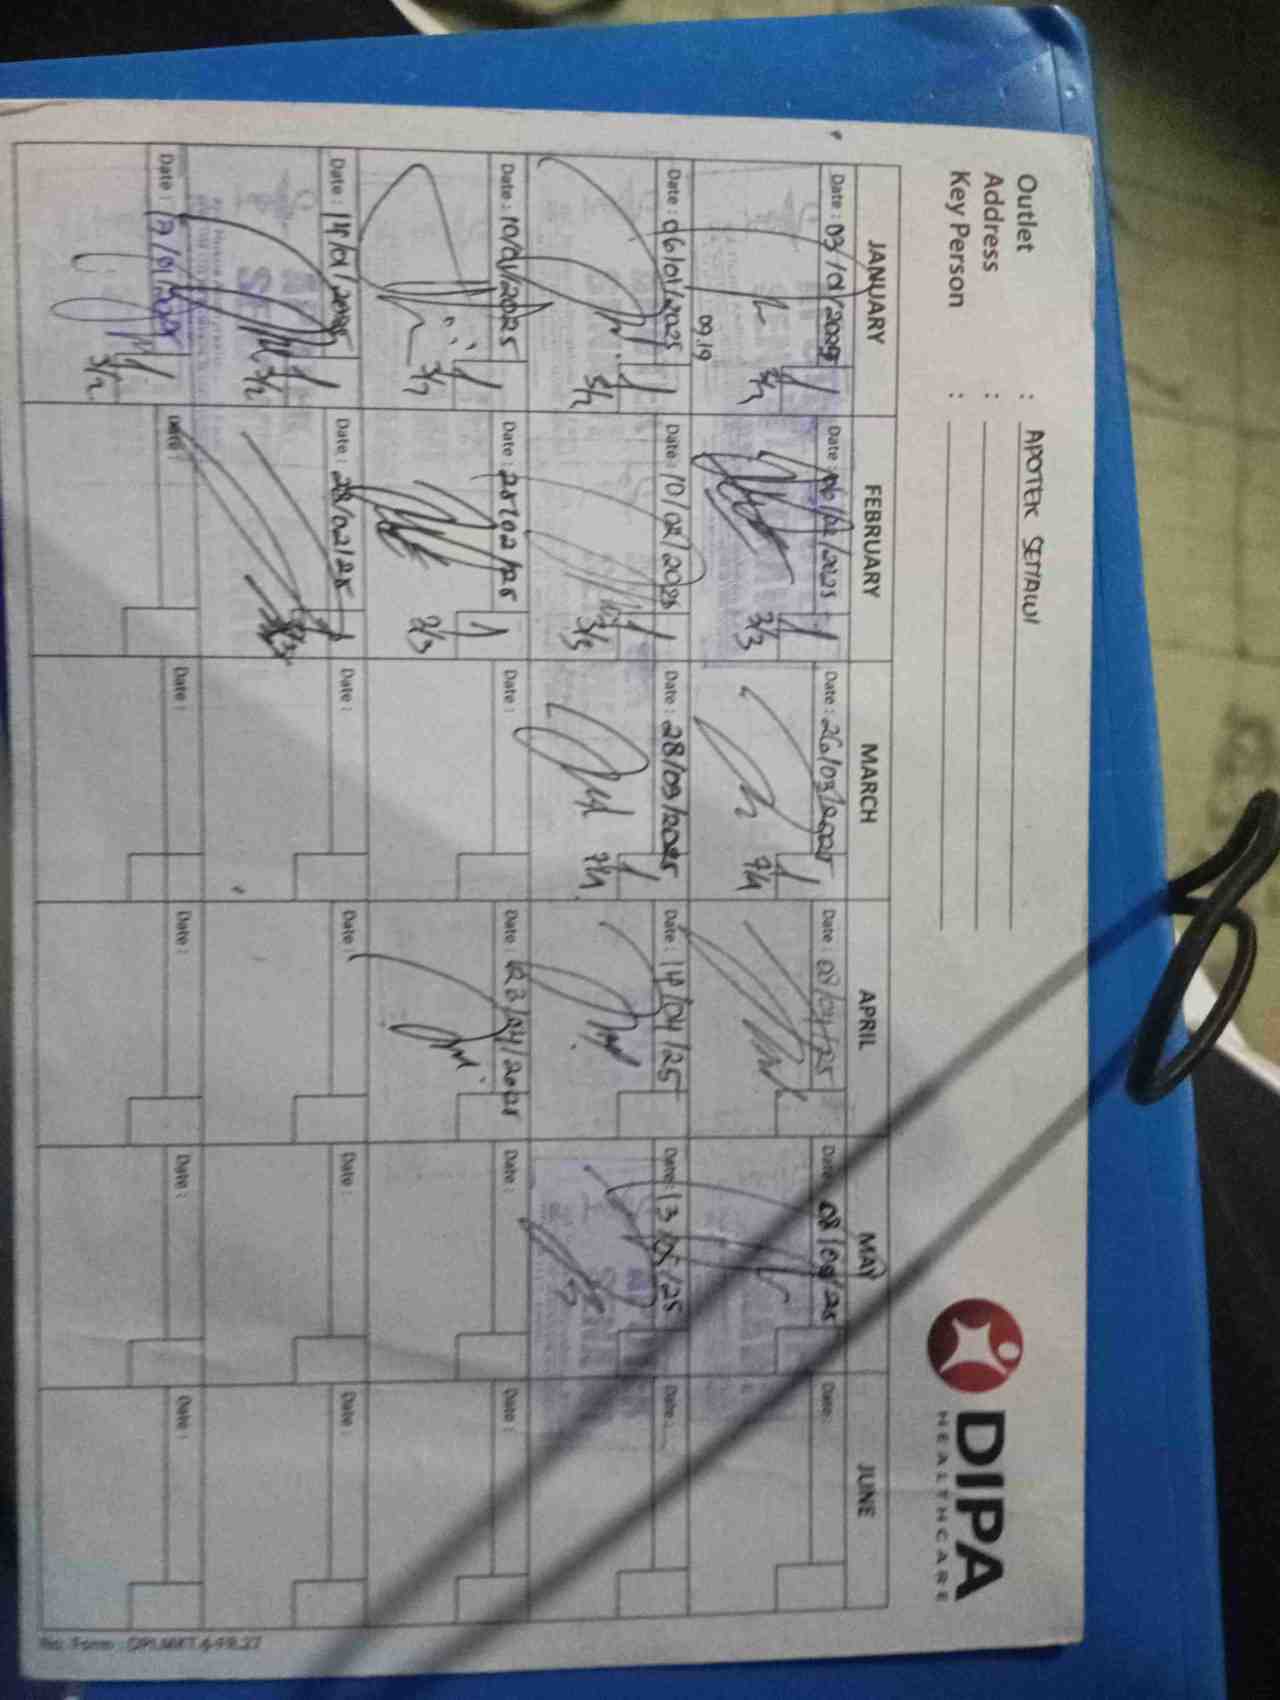 Outlet : APOTEK SETIAWI
Address :
Key Person :
DIPA
HEALTHCARE
JANUARY FEBRUARY MARCH APRIL MAY JUNE
Date : 03/01/2025 Date : 06/02/2025 Date : 26/03/2025 Date : 08/04/25 Date : 08/05/25 Date :
3/2 3/3 7/4
09.19
Date : 06/01/2025 Date : 10/02/2025 Date : 28/03/2025 Date : 14/04/25 Date : 13/05/25 Date :
3/2 3/3 7/4
Date : 10/01/2025 Date : 25/02/25 Date : Date : 23/04/2025 Date : Date :
3/2 3/3
Date : 14/01/2025 Date : 28/02/25 Date : Date : Date : Date :
3/2
Date : 17/01/2025 Date : Date : Date : Date : Date :
3/2
No. Form : DPI.MKT.4-FR.27